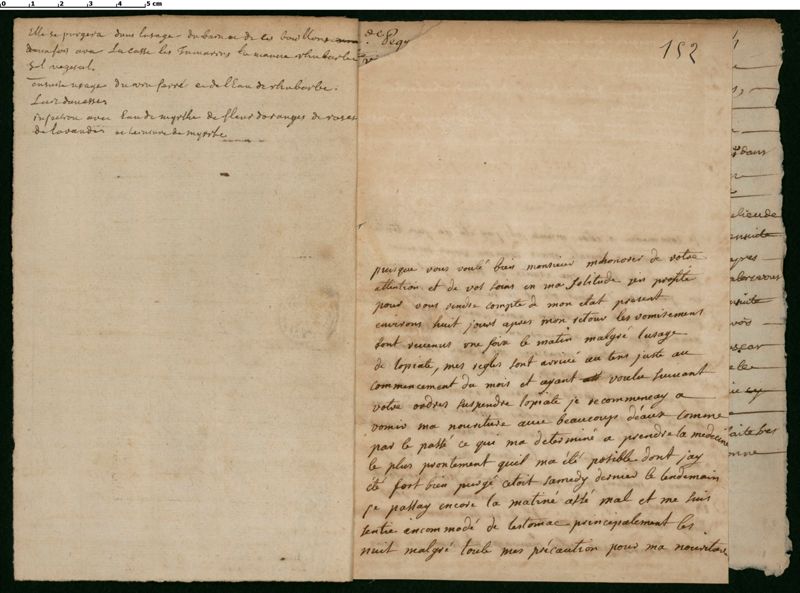 Elle se purgera dans lusage du baume de ces bouillons
deux fois avec La casse les Tamarins la manne rhubarbe
Sel vegetal.
ensuite usage du vin ferré et de l'Eau de rhubarbe.
injection avec Eau de myrthe de fleur doranges de roses
de lavande et teinture de myrrhe
152
puisque vous voulé bien monsieur mhonorer de votre
attention et de vos soins en ma solitude jen profite
pour vous rendre compte de mon etat present
environs huit jours apres mon retour les vomisements
sont revenus une fois le matin malgré lusage
de lopiate, mes regles sont arrivé au tems juste au
commencement du mois et ayant voulu suivant
votre ordres suspendre lopiate je recommencay a
vomir ma nouriture avec beaucoups déaux comme
par le passé ce qui ma determiné a prendre la medecine
le plus prontement quil ma été posible dont jay
été fort bien purgé cetoit samedy dernier le lendemain
je passay encore la matiné assé mal et me suis
sentie encommodé de lestomac principalement les
nuit malgré toute mes précaution pour ma nouriture
dans
lieu de
ensuite
apres